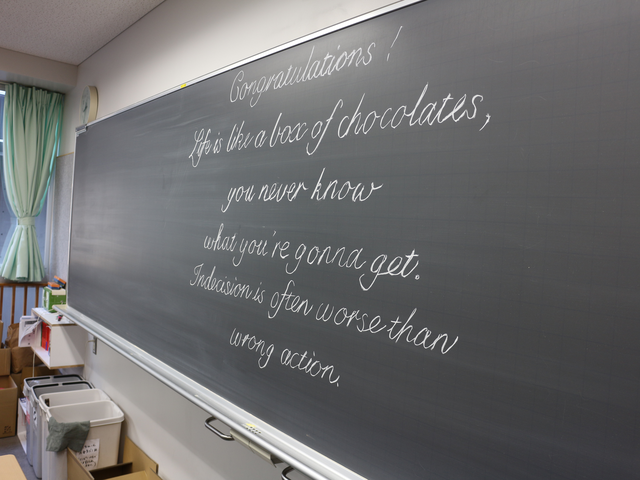 Congratulations!
Life is like a box of chocolates,
you never know
what you're gonna get.
Indecision is often worse than
wrong action.